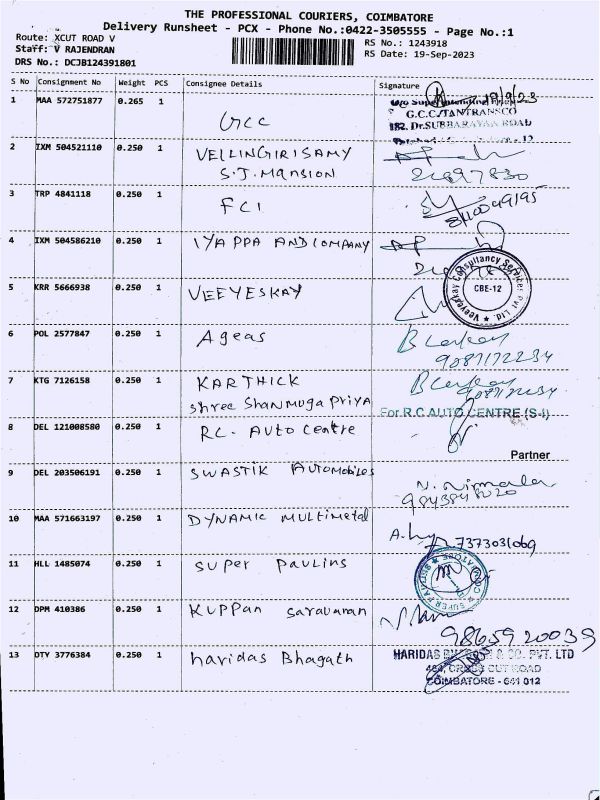 THE PROFESSIONAL COURIERS, COIMBATORE
Delivery Runsheet - PCX - Phone No.:0422-3505555 - Page No.:1
Route: XCUT ROAD V
Staff: V RAJENDRAN
DRS No.: DCJB124391801
RS No.: 1243918
RS Date: 19-Sep-2023
S No Consignment No Weight PCS Consignee Details Signature
1 MAA 572751877 0.265 1 GCC 19/9/23
G.C.C/TANTRANSCO
182, Dr.SUBBARAYAN ROAD
2 IXM 504521110 0.250 1 VELLINGIRISAMY
S.J. MANSION
3 TRP 4841118 0.250 1 FCI
4 IXM 504586210 0.250 1 IYAPPA AND COMPANY
5 KRR 5666938 0.250 1 VEEYESKAY
Veeyeskay Consultancy Services Pvt. Ltd.
CBE-12
6 POL 2577847 0.250 1 Ageas
9087172234
7 KTG 7126158 0.250 1 KARTHICK
Shree Shanmuga Priya
For R.C AUTO CENTRE (S-I)
8 DEL 121008580 0.250 1 RC. Auto Centre
Partner
9 DEL 203506191 0.250 1 SWASTIK AUTOMOBILES N. Nirmala
9843848020
10 MAA 571663197 0.250 1 DYNAMIC MULTIMETAL
7373031069
11 HLL 1485074 0.250 1 SUPER PAULINS
12 DPM 410386 0.250 1 KUPPAN Saravanan
9865920039
13 OTY 3776384 0.250 1 haridas Bhagath
HARIDAS & CO. PVT. LTD
CROSS CUT ROAD
COIMBATORE - 641 012